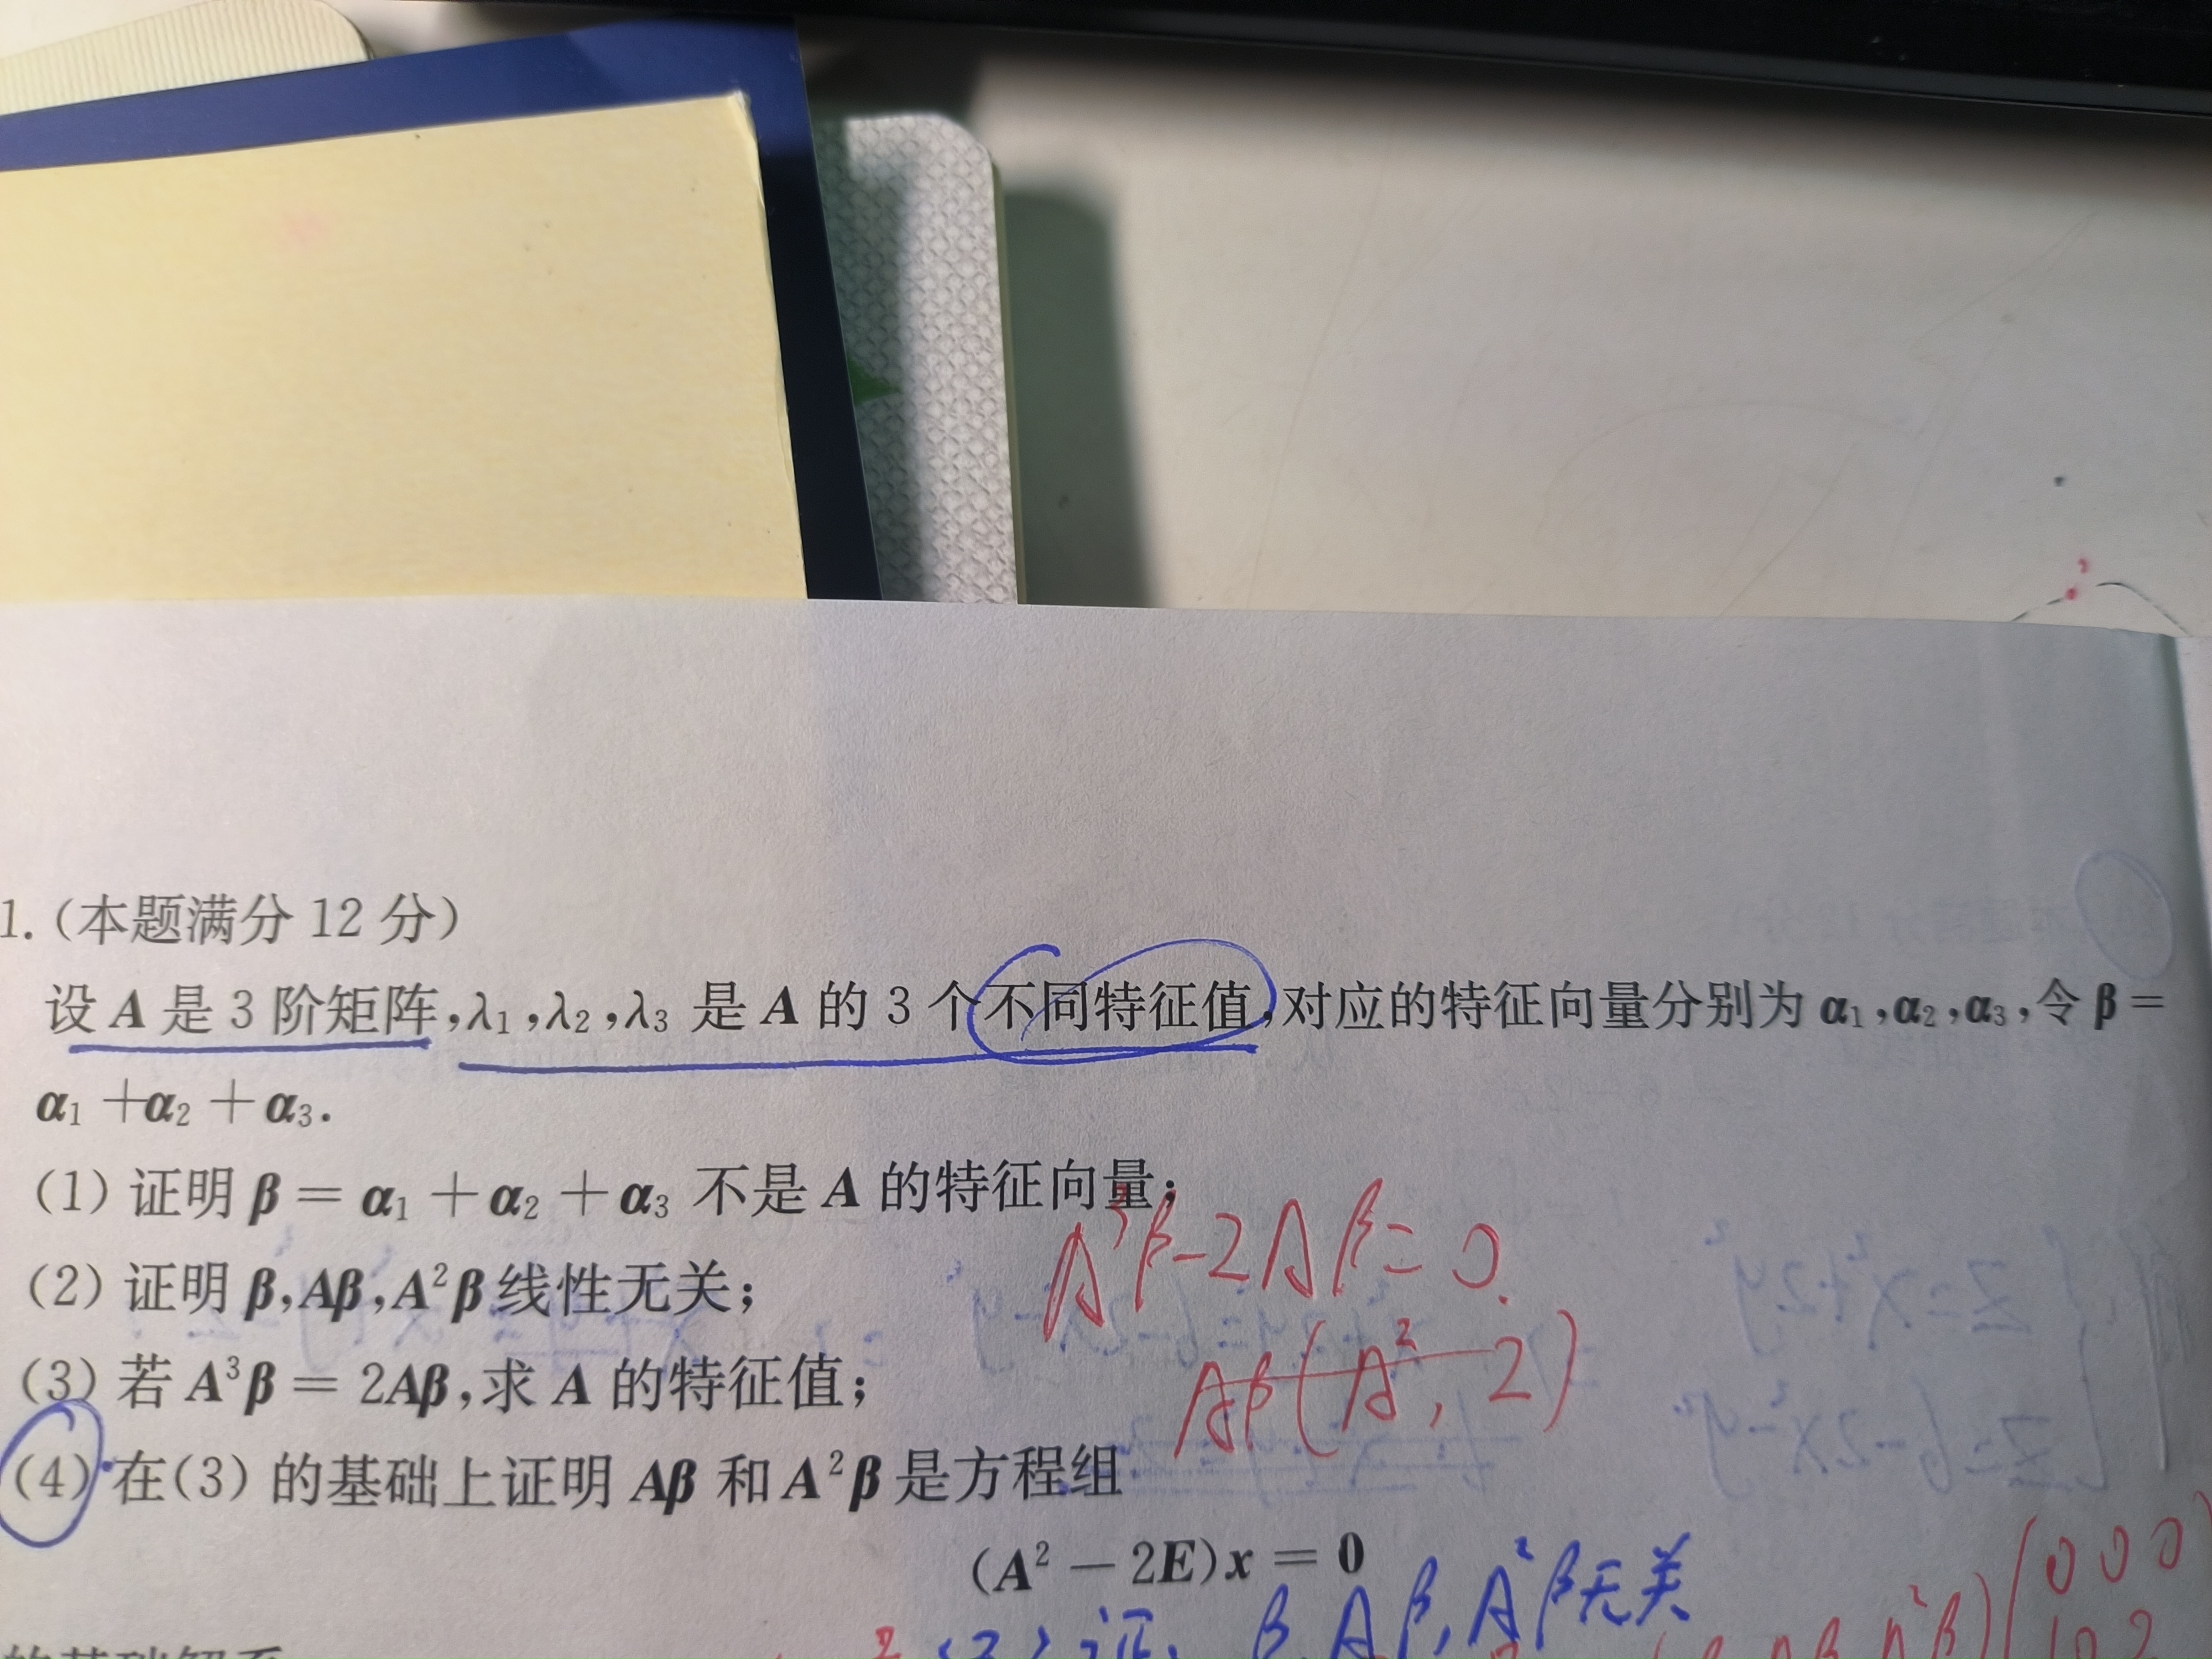 1.(本题满分 12 分)
设 A 是 3 阶矩阵,λ₁,λ₂,λ₃ 是 A 的 3 个不同特征值,对应的特征向量分别为 α₁,α₂,α₃,令 β =
α₁ + α₂ + α₃.
(1) 证明 β = α₁ + α₂ + α₃ 不是 A 的特征向量;
(2) 证明 β,Aβ,A²β 线性无关;
A³β-2Aβ=0.
(3) 若 A³β = 2Aβ,求 A 的特征值;
Aβ(A², 2)
(4) 在(3) 的基础上证明 Aβ 和 A²β 是方程组
(A² − 2E)x = 0
β,Aβ,A²β无关
的基础解系